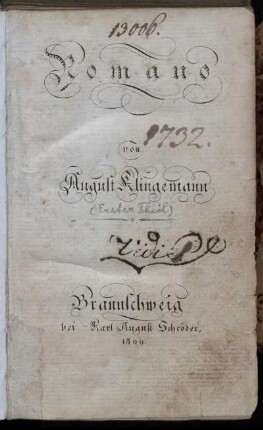 13006.
Romano
1732.
von
August Klingemann
(Erster Theil)
Vidi
Braunschweig
bei Karl August Schröder,
1800